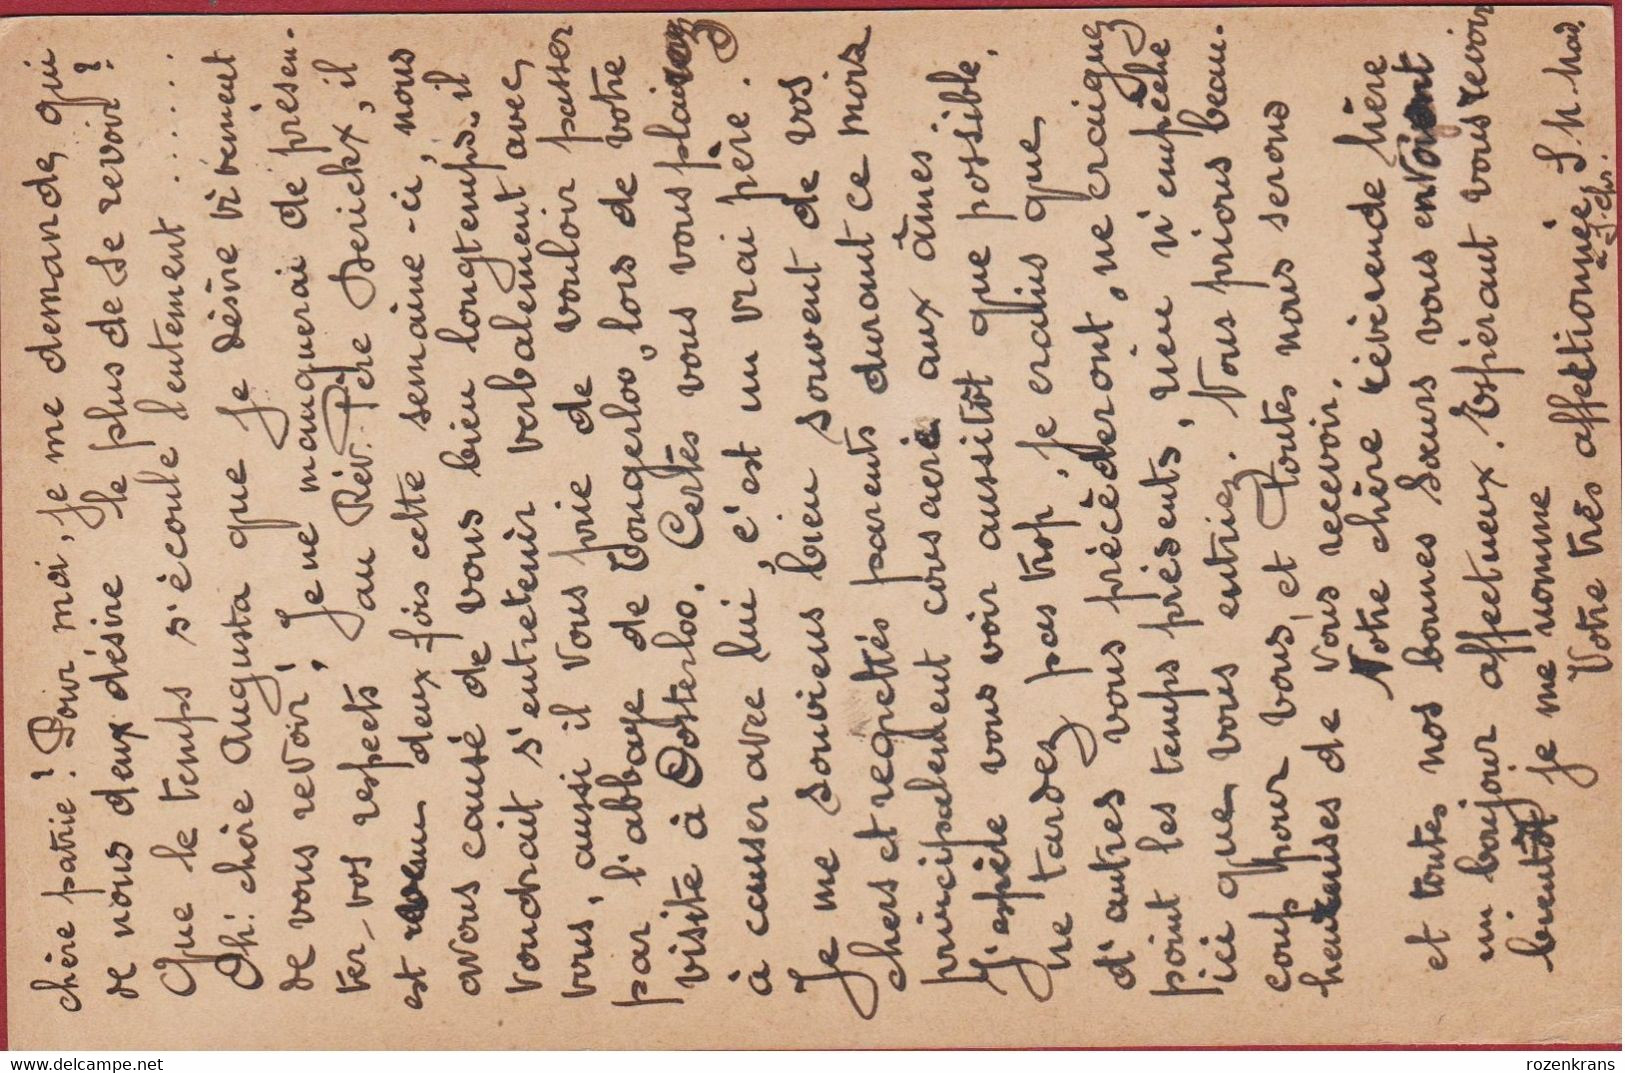 chère patrie! Pour moi, je me demande, qui
de nous deux désire le plus de se revoir?
Que le temps s'écoule lentement......
Oh! chère Augusta que je désire vivement
de vous revoir! Je ne manquerai de présen-
ter vos respects au Rév. Père Derickx, il
est venu deux fois cette semaine-ci, nous
avons causé de vous bien longtemps. il
voudrait s'entretenir verbalement avec
vous, aussi il vous prie de vouloir passer
par l'abbaye de Tongerloo, lors de votre
visite à Oosterloo. Certes vous vous plairez
à causer avec lui, c'est un vrai père.
Je me souviens bien souvent de vos
chers et regrettés parents durant ce mois
principalement consacré aux âmes.
J'espère vous voir aussitôt que possible,
ne tardez pas trop, je crains que
d'autres vous précèderont, ne craignez
point les temps présents, rien n'empêche
ici que vous entriez. Nous prions beau-
coup pour vous, et toutes nous serons
heureuses de vous recevoir.
Notre chère révérende Mère
et toutes nos bonnes Sœurs vous envoient
un bonjour affectueux. Espérant vous revoir
bientôt je me nomme
Votre très affectionnée
en J. Chr.
rozenkrans